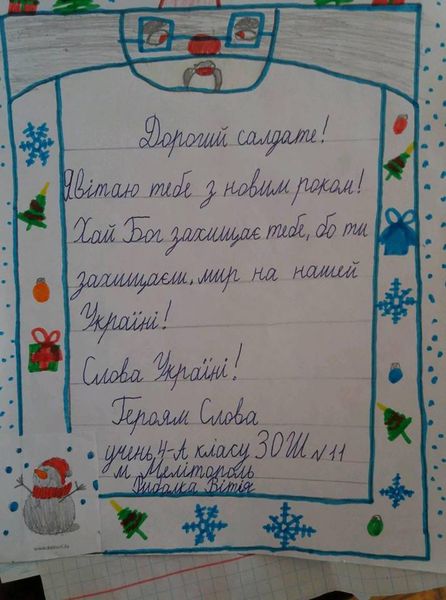 Дорогий салдате!
Явітаю тебе з новим роком!
Хай Бог захищає тебе, бо ти
захищаєш, мир на нашей
Україні!
Слова Україні!
Героям Слова
учень, 4-А класу ЗОШ №11
м Мелітороль
Рибалка Вітія